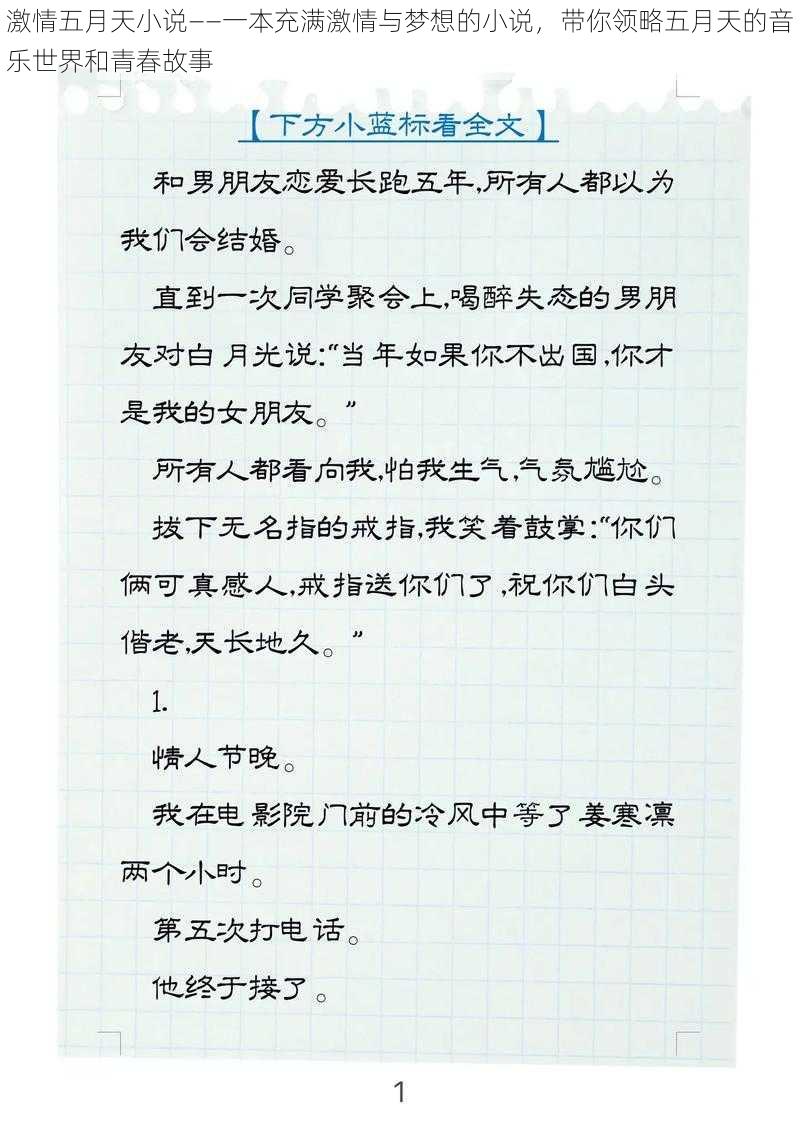 激情五月天小说——一本充满激情与梦想的小说，带你领略五月天的音
乐世界和青春故事
【下方小蓝标看全文】
和男朋友恋爱长跑五年,所有人都以为
我们会结婚。
直到一次同学聚会上,喝醉失态的男朋
友对白月光说:“当年如果你不出国,你才
是我的女朋友。”
所有人都看向我,怕我生气,气氛尴尬。
拔下无名指的戒指,我笑着鼓掌:“你们
俩可真感人,戒指送你们了,祝你们白头
偕老,天长地久。”
1.
情人节晚。
我在电影院门前的冷风中等了姜寒凛
两个小时。
第五次打电话。
他终于接了。
1